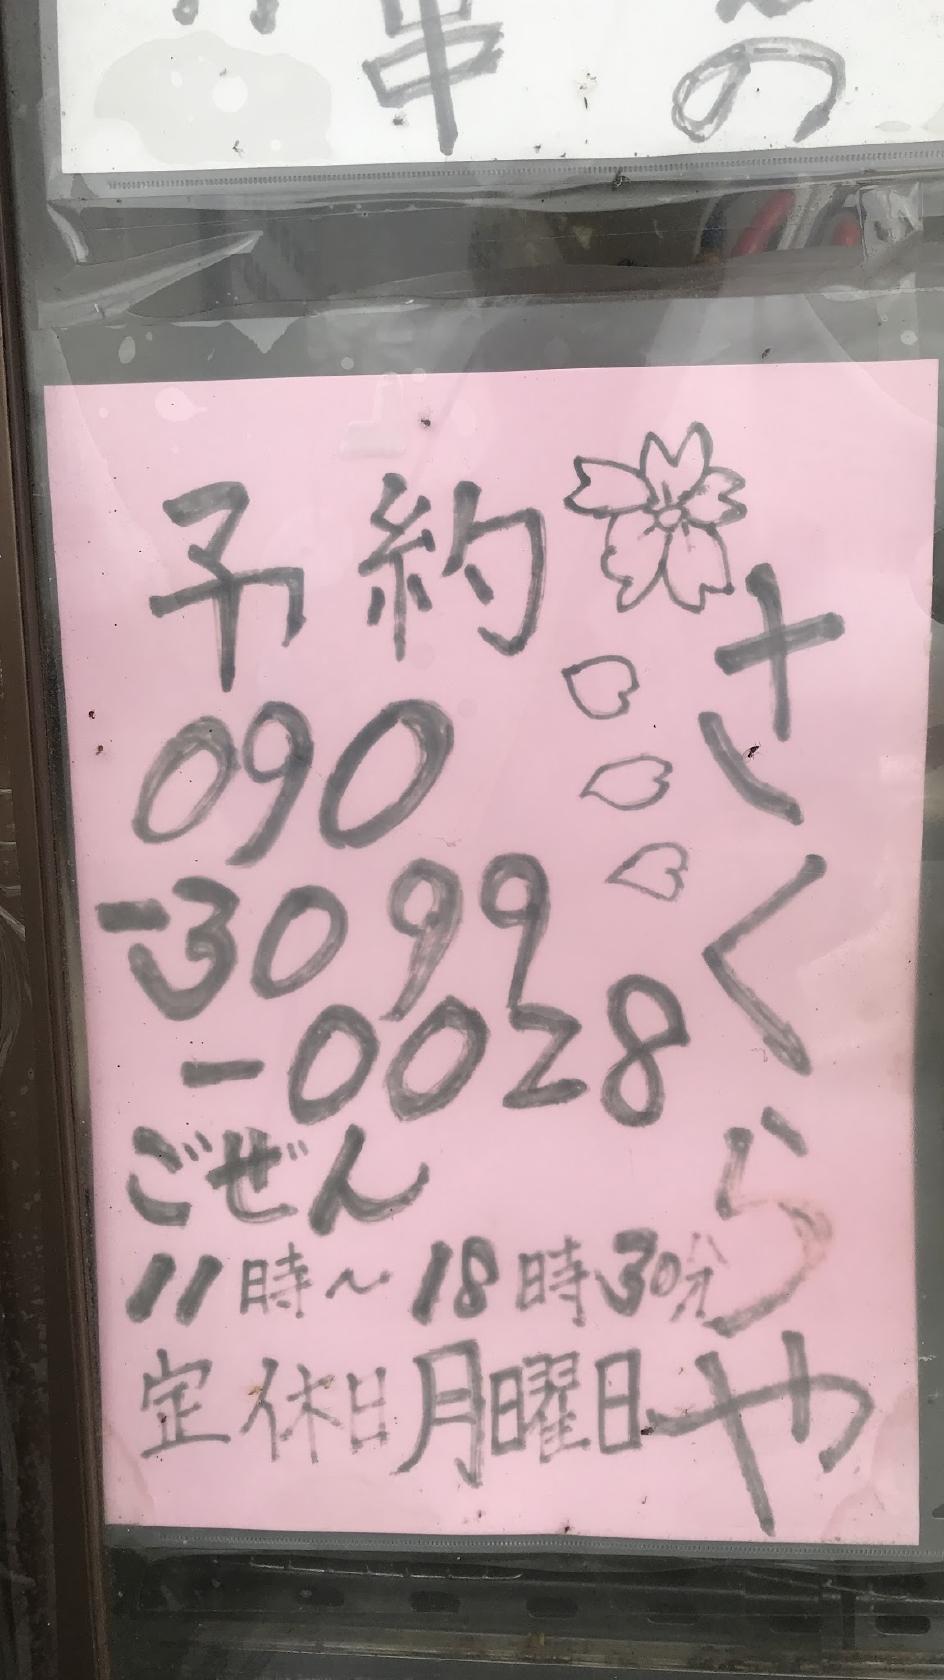 串
の
さくらや
予約
090
-3099
-0028
ごぜん
11時~18時30分
定休日月曜日